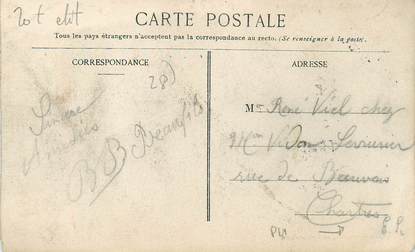 CARTE POSTALE
Tous les pays étrangers n'acceptent pas la correspondance au recto. (Se renseigner à la poste).
CORRESPONDANCE
28)
Sincère
Amitiés
BB
ADRESSE
M René Viel chez
Serrurier
rue de Beauvais
Chartres